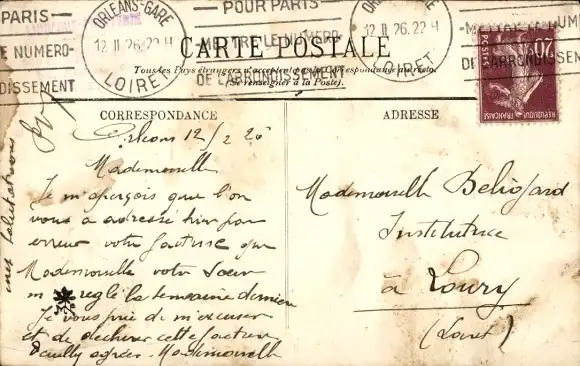 PARIS —
E NUMERO-
DISSEMENT
ORLEANS-GARE
12 II 26.22 H
LOIRET
— POUR PARIS —
METTRE LE NUMERO
DE L'ARRONDISSEMENT
ORLEANS-GARE
12 II 26.22 H
LOIRET
METTRE LE NUM
DE L'ARRONDISSEM
CARTE POSTALE
Tous les Pays étrangers n'acceptent pas la Correspondance au recto.
(Se renseigner à la Poste).
20c
POSTES
REPUBLIQUE FRANÇAISE
CORRESPONDANCE
ADRESSE
Orléans 12/2 26
Mademoiselle
Je m'aperçois que l'on
vous a adressé hier par
erreur votre facture que
Mademoiselle votre soeur
m' réglé la semaine dernière
Je vous prie de m'excuser
et de déchirer cette facture
Veuillez agréer Mademoiselle
mes salutations
Mademoiselle Beliojard
Institutrice
à Loury
(Loiret)